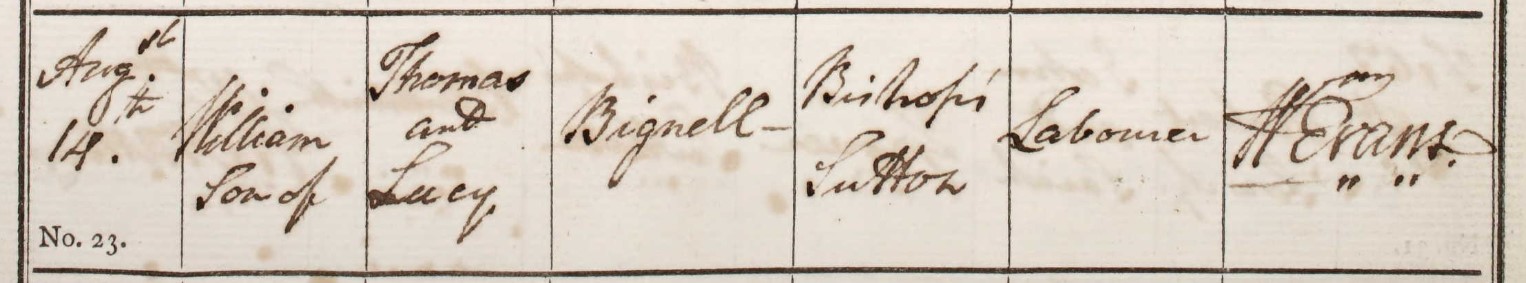 Augst.
14th.
No. 23.
William
Son of
Thomas
and
Lucy
Bignell -
Bishop's
Sutton
Labourer
Wm Evans.